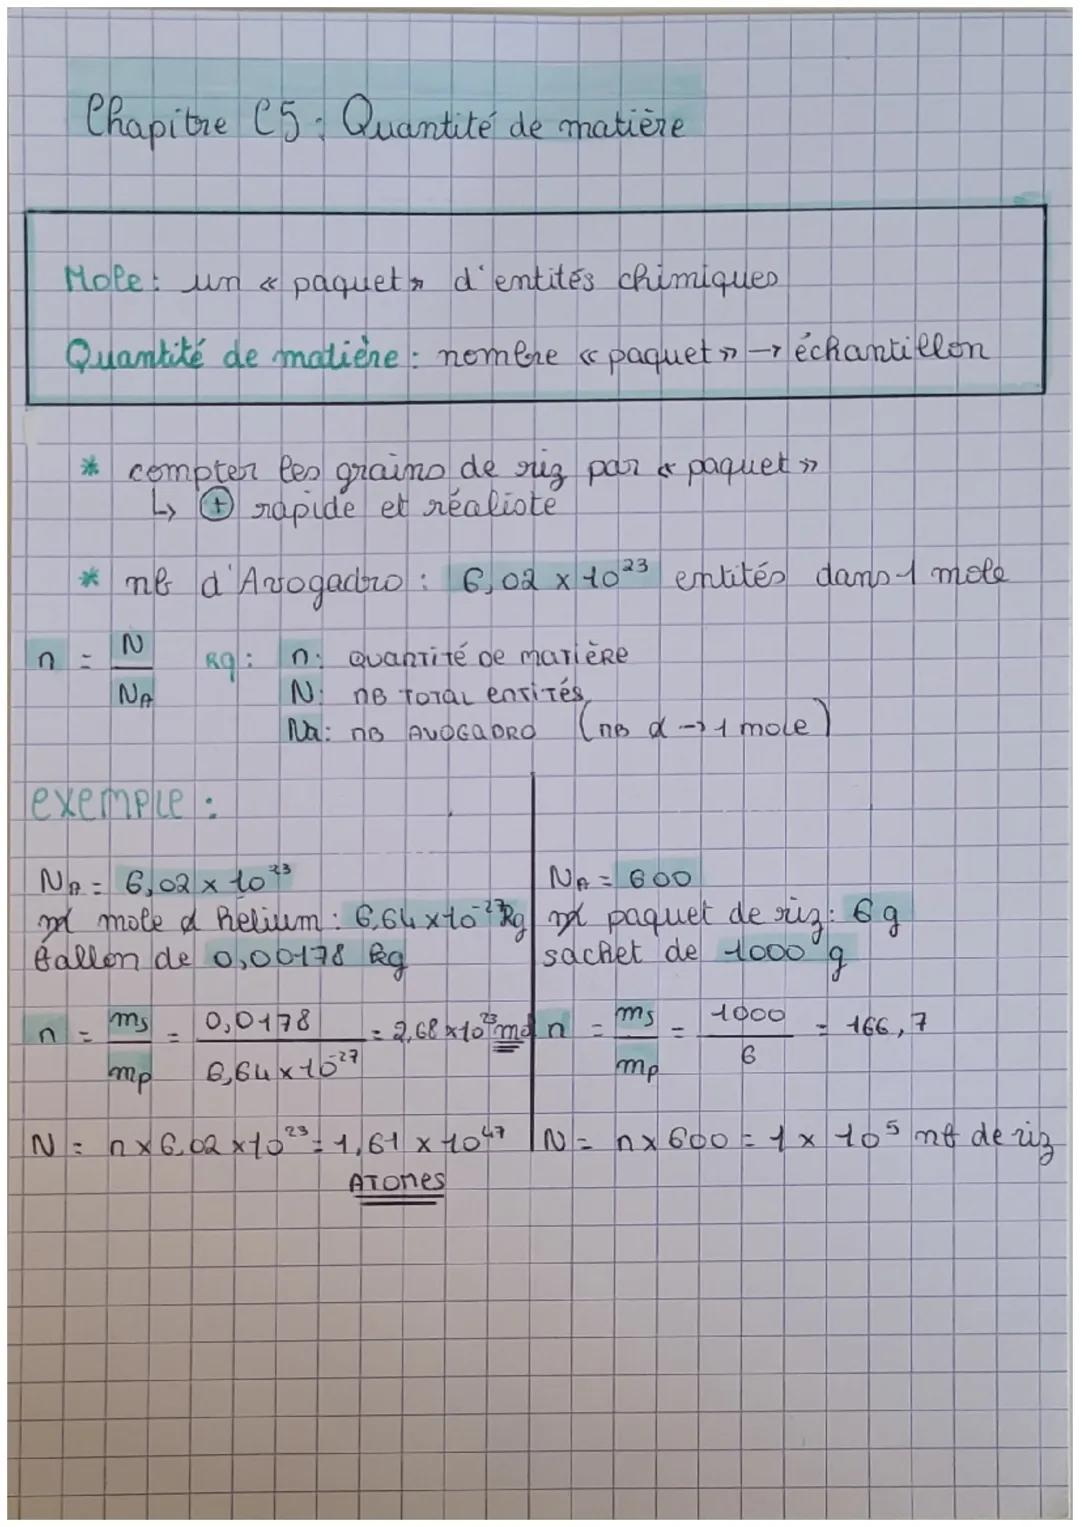 Chapitre C5 : Quantité de matière
Mole : un « paquet » d'entités chimiques
Quantité de matière : nombre « paquet » → échantillon
* compter les grains de riz par « paquet »
↳ ⊕ rapide et réaliste
* nb d'Avogadro : 6,02 x 10²³ entités dans 1 mole
n = N / NA
RQ : n : quantité de matière
N : nb total entités
Na : nb AVOGADRO (nb d → 1 mole)
exemple :
NA = 6,02 x 10²³
mole d hélium : 6,64 x 10⁻²⁷ kg
Ballon de 0,00178 kg
n = ms / mp = 0,0178 / 6,64 x 10⁻²⁷ = 2,68 x 10²³ mol
N = n x 6,02 x 10²³ = 1,61 x 10⁴⁷
ATOMES
NA = 600
paquet de riz : 6 g
sachet de 1000 g
n = ms / mp = 1000 / 6 = 166,7
N = n x 600 = 1 x 10⁵ nb de riz